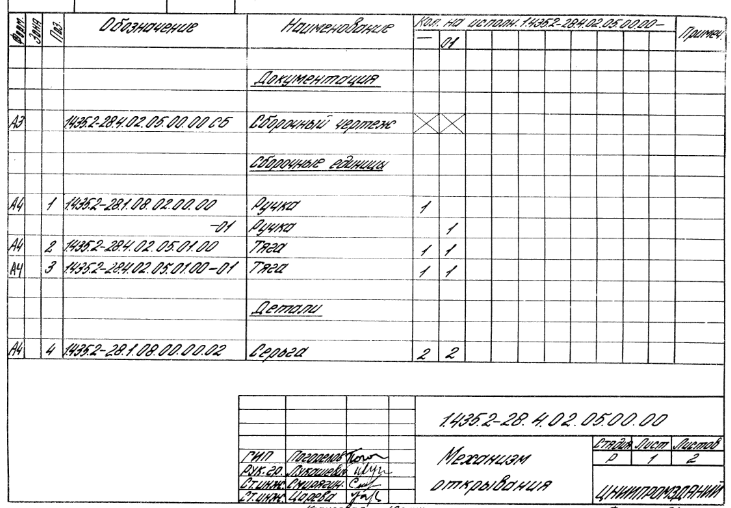 Форм. Зона Поз. Обозначение Наименование Кол. на исполн. 1.435.2-28.4.02.05.00.00- Примеч.
— 01
Документация
А3 1.435.2-28.4.02.05.00.00 СБ Сборочный чертеж
Сборочные единицы
А4 1 1.435.2-28.1.08.02.00.00 Ручка 1
-01 Ручка 1
А4 2 1.435.2-28.4.02.05.01.00 Тяга 1 1
А4 3 1.435.2-28.4.02.05.01.00-01 Тяга 1 1
Детали
А4 4 1.435.2-28.1.08.00.00.02 Серьга 2 2
1.435.2-28.4.02.05.00.00
Механизм
открывания
Стадия Лист Листов
Р 1 2
ЦНИИПРОМЗДАНИЙ
ГИП
Рук. гр. Лукашевич
Ст. инж. Смирягин
Ст. инж. Царева